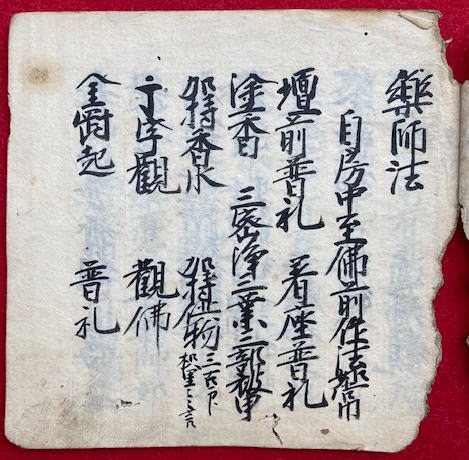 藥師法
自房中至佛前作法如常
壇前普礼 着座普礼
塗香 三密 淨三業 三部 被甲
加持香水 加持供物
字觀 觀佛
金剛起 普礼